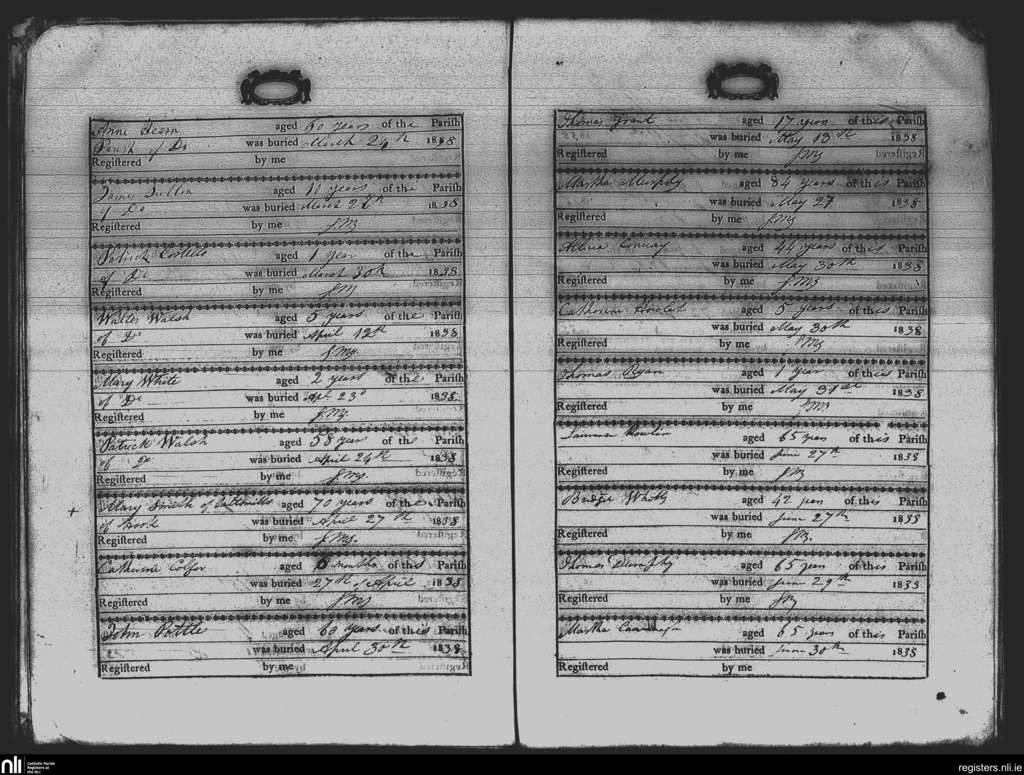 Anne Hearn aged 60 years of the Parish
Parish of Do was buried March 24th 1838
Registered by me
James Cullin aged 11 years of the Parish
of Do was buried March 28th 1838
Registered by me
Patrick Costello aged 1 year of the Parish
of Do was buried March 30th 1838
Registered by me
Walter Walsh aged 5 years of the Parish
of Do was buried April 12th 1838
Registered by me
Mary White aged 2 years of the Parish
of Do was buried Apl 23d 1838
Registered by me
Patrick Walsh aged 58 years of the Parish
of Do was buried April 24th 1838
Registered by me
Mary Smith of aged 70 years of the Parish
of Hook was buried April 27th 1838
Registered by me
Catherine Colfer aged months of this Parish
was buried 27th of April 1838
Registered by me
John Pottle aged 60 years of this Parish
was buried April 30th 1838
Registered by me
Thomas Grant aged 17 years of this Parish
was buried May 13th 1838
Registered by me
Martha Murphy aged 84 years of this Parish
was buried May 27 1838
Registered by me
Conway aged 44 years of this Parish
was buried May 30th 1838
Registered by me
Catherine Howlet aged 5 years of this Parish
was buried May 30th 1838
Registered by me
Thomas Ryan aged 1 year of this Parish
was buried May 31st 1838
Registered by me
aged 65 years of this Parish
was buried June 27th 1838
Registered by me
Whoty aged 42 years of this Parish
was buried June 27th 1838
Registered by me
Thomas Murphy aged 65 years of this Parish
was buried June 29th 1838
Registered by me
Martha Cavanagh aged 65 years of this Parish
was buried June 30th 1838
Registered by me
nli Catholic Parish
Registers at
the NLI
registers.nli.ie